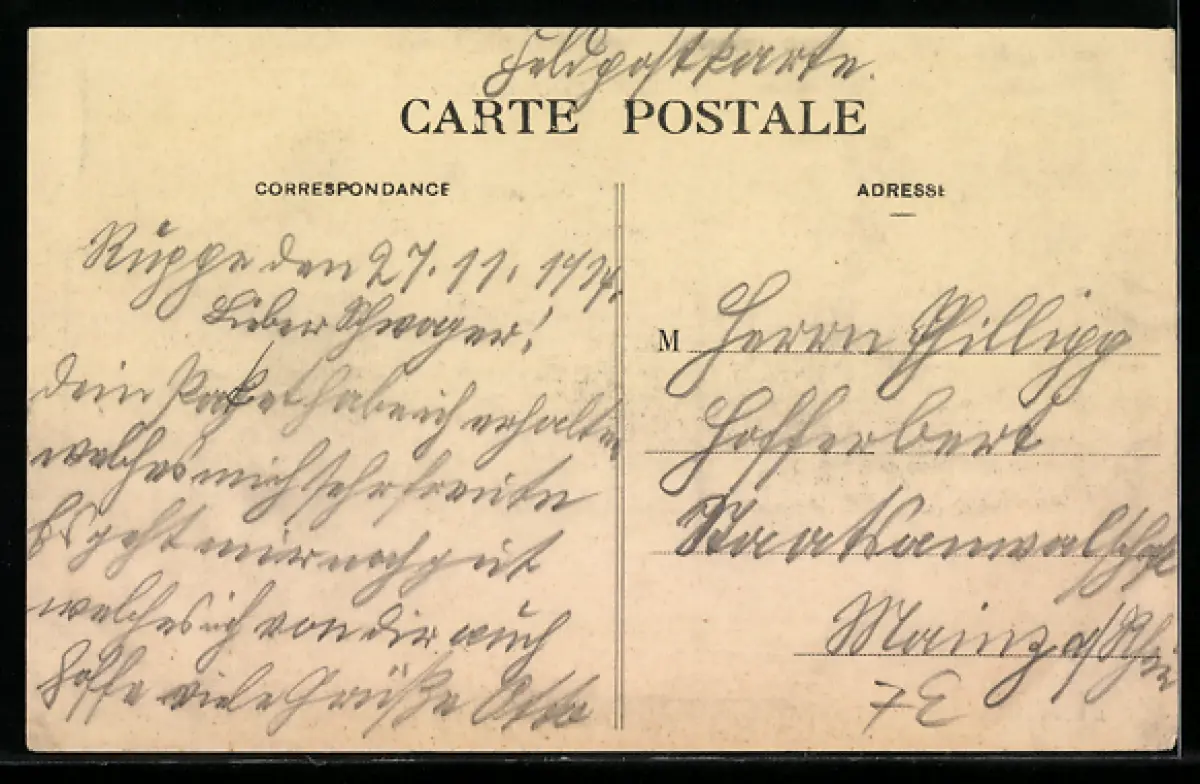 Feldpostkarte.
CARTE POSTALE
CORRESPONDANCE
ADRESSE
den 27. 11. 1914.
Lieber Schwager!
Dein Paket habe ich erhalten
welches mich sehr freute
Es geht mir noch gut
welches ich von dir auch
hoffe viele Grüße Otto
M Herrn Phillipp
Hofferbert
Staatsanwaltschaft
Mainz a/Rhein
7E